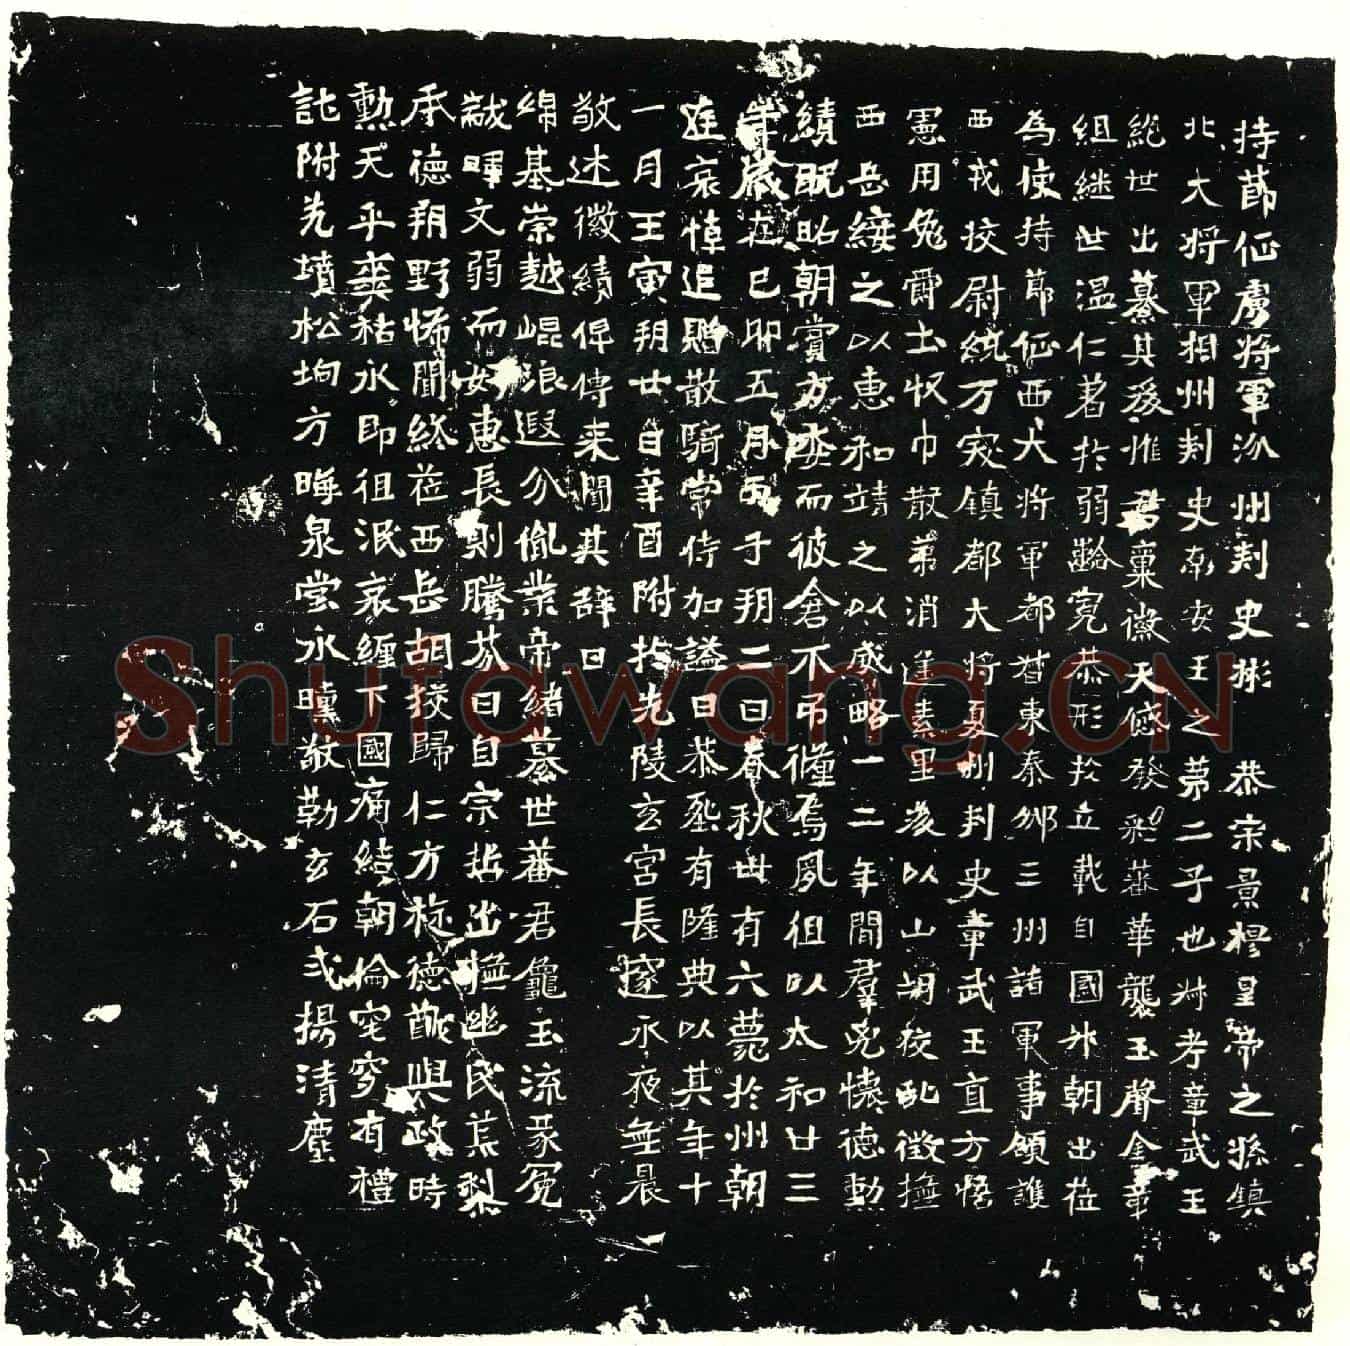 持節征虜將軍汾州刺史彬 恭宗景穆皇帝之孫鎮
北大將軍相州刺史南安王之第二子也叔考章武王
絕世出纂其後惟君稟徽天感發彩蕃華襲玉聲金章
組繼世溫仁著於弱齡寬恭形於立載自國升朝出莅
為使持節征西大將軍都督東秦邠三州諸軍事領護
西戎校尉統万突鎮都大將夏州刺史章武王直方悟
憲用免爵土收巾散第消逢素里後以山胡校亂徵撫
西岳綏之以惠和靖之以威略一二年間羣兇懷德勳
績既昭朝賞方委而彼倉不弔殲焉夙徂以太和廿三
年歲在己卯五月丙子朔二日春秋卅有六薨於州朝
廷哀悼追贈散騎常侍加謚曰恭葬有隆典以其年十
一月壬寅朔廿日辛酉附於先陵玄宮長邃永夜無晨
敬述徽績俾傳來聞其辭曰
綿基崇越崐浪遐分胤業帝緒纂世蕃君龜玉流彖冕
黻暉文弱而好惠長則騰芬曰自宗哲出撫幽民荒梨
承德朔野怖聞終莅西岳胡狡歸仁方旌德猷與政時
勳天乎奭祜永即徂泯哀纏下國痛結朝倫窀穸有禮
託附先墳松垧方晦泉堂永曛敬勒玄石式揚清塵
Shufawang.CN